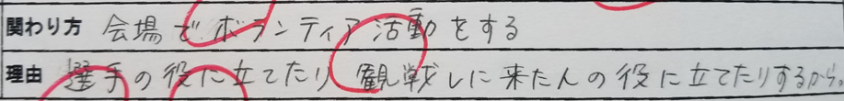 関わり方 会場でボランティア活動をする
理由 選手の役に立てたり観戦しに来た人の役に立てたりするから。